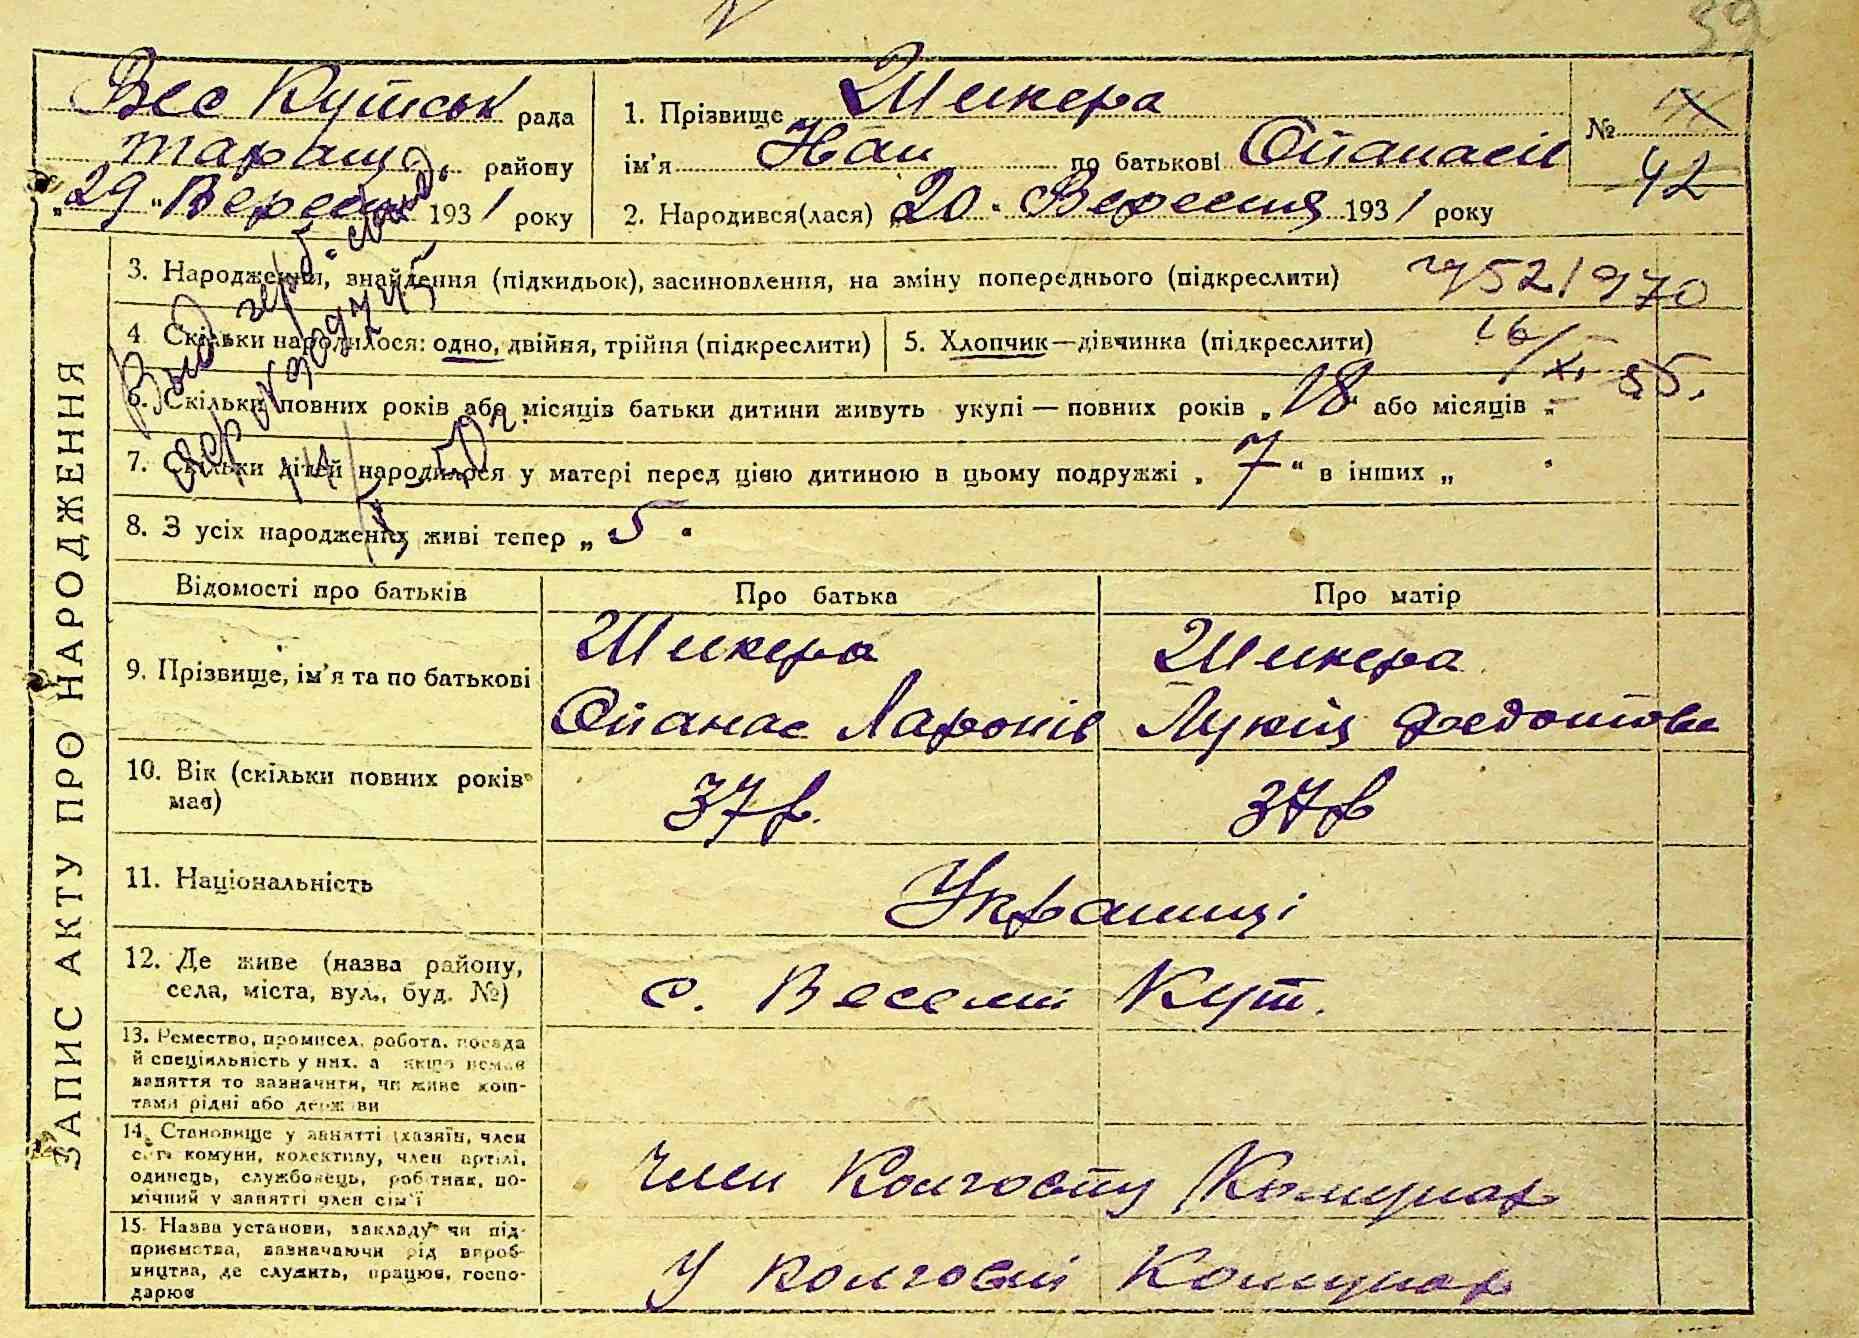 39
Вес Кутськ рада
таращ. району
„29 " Вересня 1931 року
1. Прізвище Шикера
ім'я Іван по батькові Опанасів
2. Народився(лася) „20 " Вересня 1931 року
№
42
ЗАПИС АКТУ ПРО НАРОДЖЕННЯ
3. Народження, знайдення (підкидьок), засиновлення, на зміну попереднього (підкреслити)
4 Скільки народилося: одно, двійня, трійня (підкреслити)
5. Хлопчик—дівчинка (підкреслити)
6. Скільки повних років або місяців батьки дитини живуть укупі — повних років „ 18 " або місяців „
7. Скільки дітей народилося у матері перед цією дитиною в цьому подружжі „ 7 " в інших „
8. З усіх народжених живі тепер „ 5 "
Відомості про батьків
Про батька
Про матір
9. Прізвище, ім'я та по батькові
Шикера
Опанас Ларонів
Шикера
Лукія Федотова
10. Вік (скільки повних років має)
37 р.
37 р
11. Національність
Українці
12. Де живе (назва району,
села, міста, вул., буд. №)
с. Веселий Кут.
13. Ремество, промисел, робота, посада
й спеціяльність у них, а якщо немає
заняття то зазначити, чи живе кош-
тами рідні або держави
14. Становище у занятті (хазяїн, член
с.-г. комуни, колективу, член артілі,
одинець, службовець, робітник, по-
мічний у занятті член сім'ї
член Колгоспу Комунар
15. Назва установи, закладу чи під-
приємства, зазначаючи рід вироб-
ництва, де служить, працює, госпо-
дарює
У колгоспі Комунар